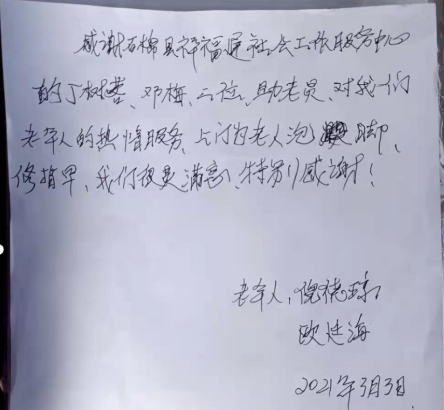 感谢石棉县祥福通社会工作服务中心
的丁树蓉、邓梅、二位、助老员、对我们
老年人的热情服务、上门为老人泡脚、
修指甲、我们很是满意、特别感谢!
老年人:倪德琼
欧廷海
2021年3月3日